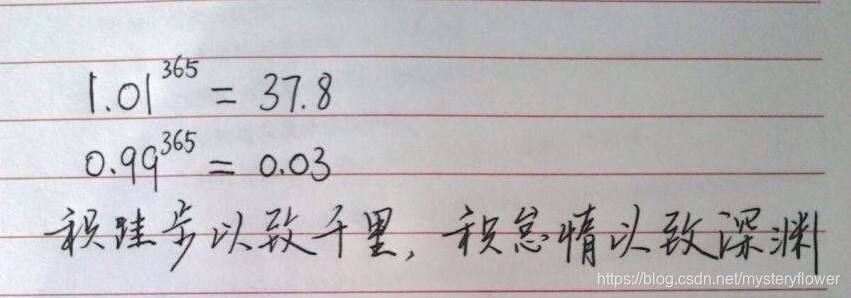 1.01^365 = 37.8
0.99^365 = 0.03
积跬步以致千里，积怠情以致深渊
https://blog.csdn.net/mysteryflower